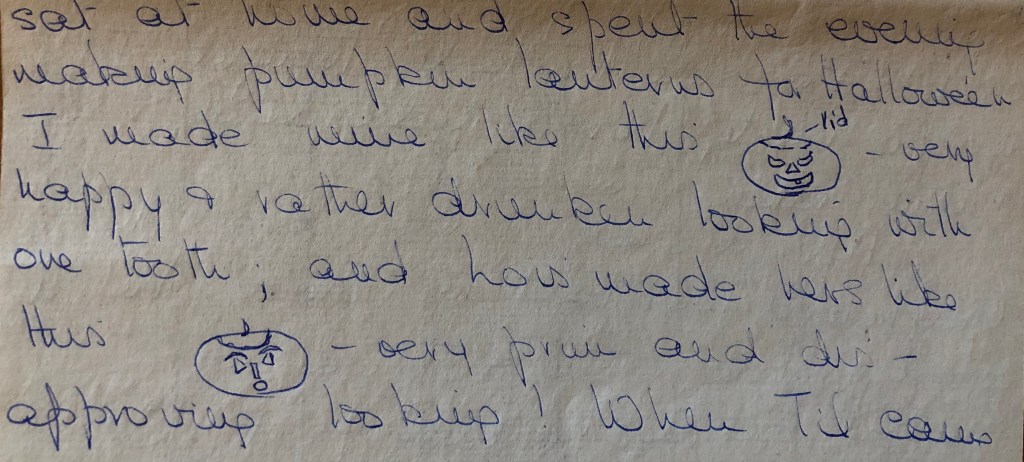 sat at mine and spent the evening
making pumpkin lanterns for Halloween
I made mine like this - lid - very
happy & rather drunken looking with
one tooth; and Lois made hers like
this - very prim and dis-
approving looking! When Til came